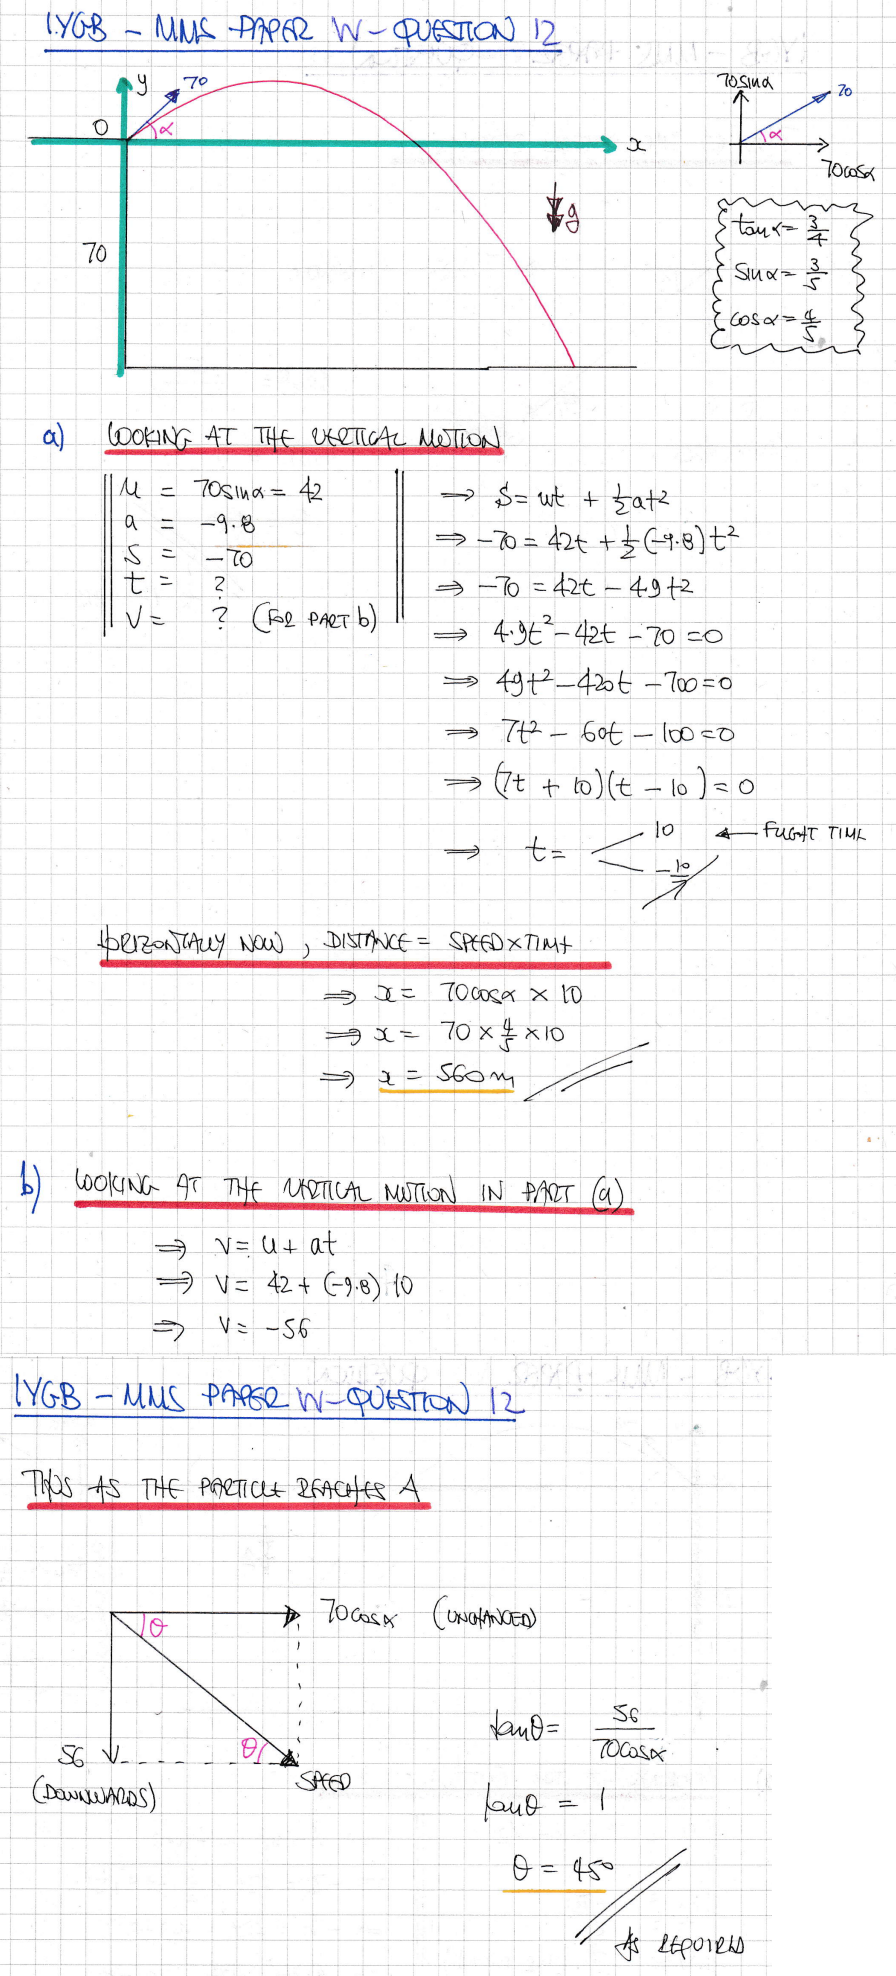 IYGB - MMS PAPER W - QUESTION 12
y
70
O
α
x
g
70
70sinα
70
α
70cosα
tanα = 3/4
sinα = 3/5
cosα = 4/5
a) LOOKING AT THE VERTICAL MOTION
u = 70sinα = 42
a = -9.8
s = -70
t = ?
V = ? (FOR PART b)
⇒ S = ut + ½at²
⇒ -70 = 42t + ½(-9.8)t²
⇒ -70 = 42t - 4.9t²
⇒ 4.9t² - 42t - 70 = 0
⇒ 49t² - 420t - 700 = 0
⇒ 7t² - 60t - 100 = 0
⇒ (7t + 10)(t - 10) = 0
⇒ t = 10 ← FLIGHT TIME
HORIZONTALLY NOW, DISTANCE = SPEED × TIME
⇒ x = 70cosα × 10
⇒ x = 70 × 4/5 × 10
⇒ x = 560m
b) LOOKING AT THE VERTICAL MOTION IN PART (a)
⇒ V = u + at
⇒ V = 42 + (-9.8) 10
⇒ V = -56
IYGB - MMS PAPER W - QUESTION 12
THUS AS THE PARTICLE REACHES A
θ
70cosα (UNCHANGED)
56
(DOWNWARDS)
θ
SPEED
tanθ = 56/70cosα
tanθ = 1
θ = 45°
As REQUIRED